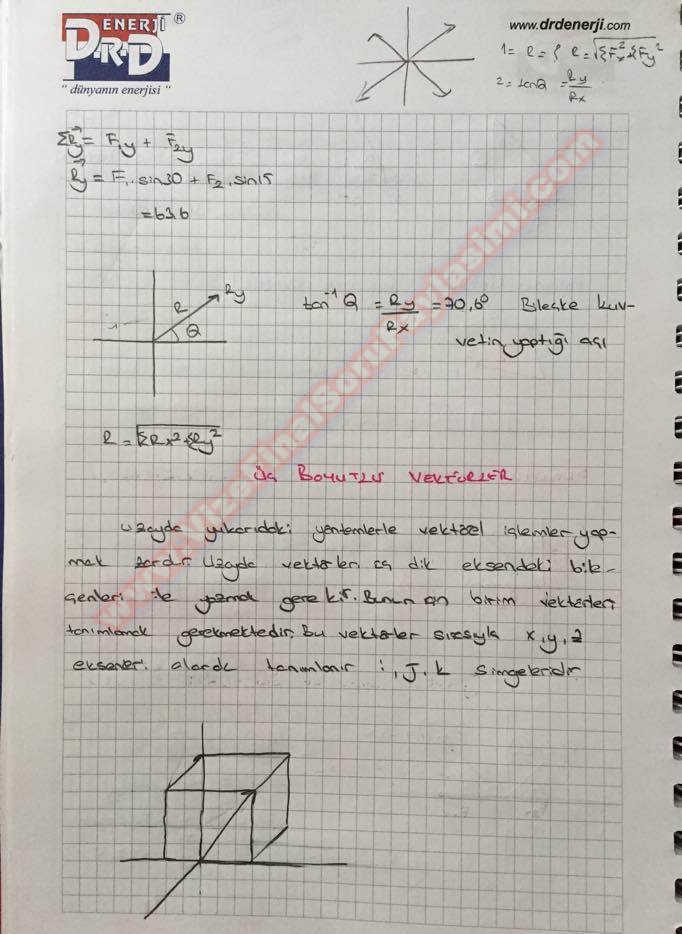 ENERJİ ®
D-R-D
"dünyanın enerjisi"
www.drdenerji.com
1= R = R = √ΣFx²ΣFy²
2= tanQ = Ry/Rx
ΣRy = F1y + F2y
Ry = F1.sin30 + F2.sin15
= 63.6
R
Ry
Q
tan⁻¹ Q = Ry/Rx = 70,6° Bileşke kuv-
vetin yaptığı açı
R = √ΣRx²+ΣRy²
ÜÇ BOYUTLU VEKTÖRLER
Uzayda yukarıdaki yöntemlerle vektörel işlemler yap-
mak zordr. Uzayda vektörleri üç dik eksendeki bile-
şenleri ile yazmak gerekir. Bunun için birim vektörleri
tanımlamak gerekmektedir. Bu vektörler sırasıyla x,y,z
eksenleri olarak tanımlanır i, J, k simgeleridir.
www.VizeFinalSoruPaylasimi.com